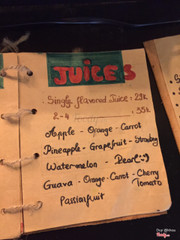 JUICES
Single flavored Juice = 29k
2-4 = 35k
Apple - Orange - Carrot
Pineapple - Grapefruit - Strawberry
Watermelon - Pear
Guava - Orange - Carrot - Cherry
Tomato
Passionfruit